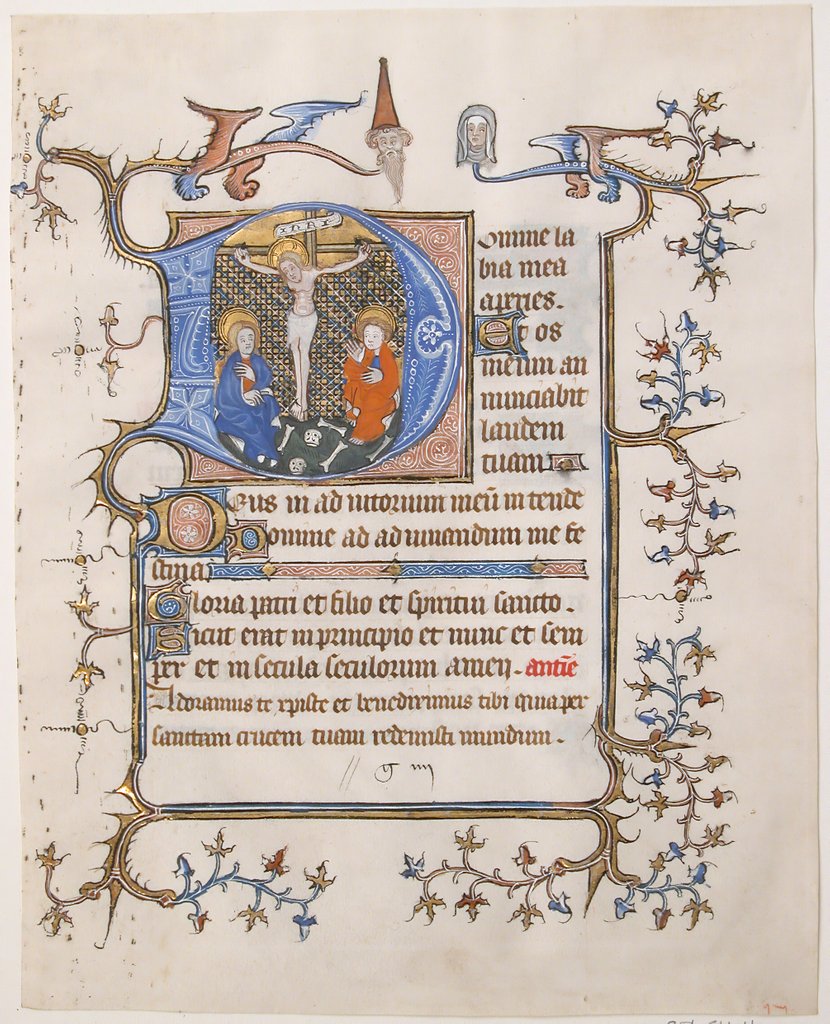 INRI
Domine la
bia mea
aperies.
Et os
meum an
nunciabit
laudem
tuam
Deus in ad iutorium meū intende
Domine ad ad iuuandum me fe
stina
Gloria patri et filio et spiritui sancto.
Sicut erat in principio et nunc et sem
per et in secula seculorum amen. antīe
Adoramus te xpiste et benedicimus tibi quia per
sanctam crucem tuam redemisti mundum.